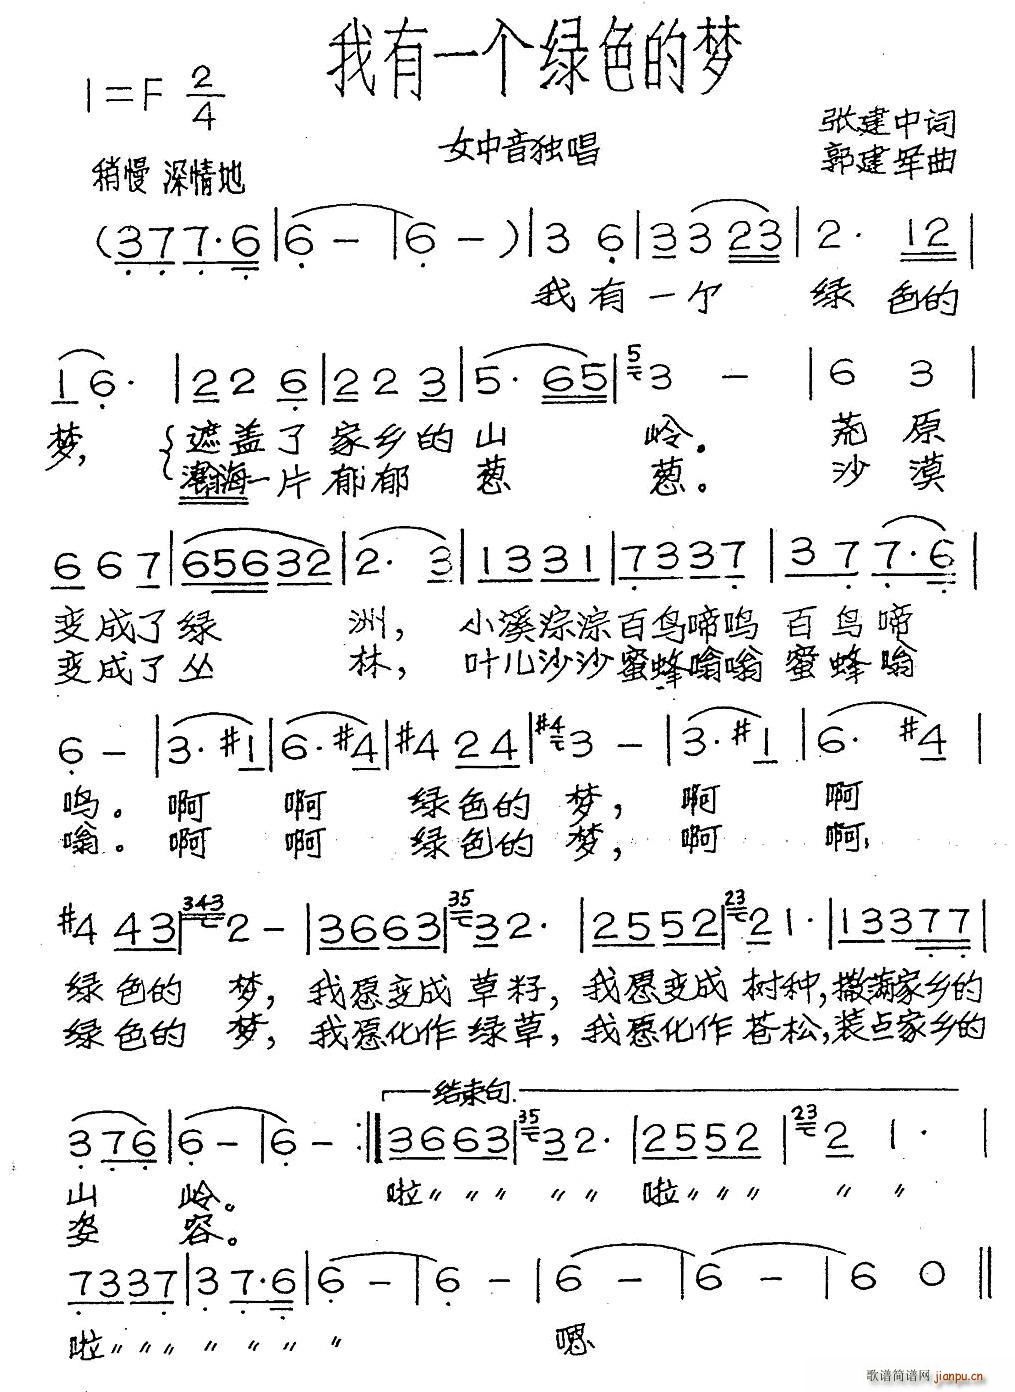 我有一个绿色的梦
1=F 2/4
女中音独唱
张建中词
郭建军曲
稍慢 深情地
(3 7 7·6 | 6 - | 6 - ) | 3 6 | 3 3 2 3 | 2· 1 2 |
我有一个 绿 色的
1 6· | 2 2 6 | 2 2 3 | 5· 6 5 | 5 3 - | 6 3 |
梦, 遮盖了 家乡的 山 岭。 荒 原
瀚海一片 郁郁 葱 葱。 沙 漠
6 6 7 | 6 5 6 3 2 | 2· 3 | 1 3 3 1 | 7 3 3 7 | 3 7 7·6 |
变成了 绿 洲, 小溪淙淙 百鸟啼鸣 百鸟啼
变成了 丛 林, 叶儿沙沙 蜜蜂嗡嗡 蜜蜂嗡
6 - | 3·#1 | 6·#4 | #4 2 4 | #4 3 - | 3·#1 | 6· #4 |
鸣。 啊 啊 绿色的 梦, 啊 啊
嗡。 啊 啊 绿色的 梦, 啊 啊,
#4 4 3 | 343 2 - | 3 6 6 3 | 35 3 2· | 2 5 5 2 | 23 2 1· | 1 3 3 7 7 |
绿 色的 梦, 我愿变成 草籽, 我愿变成 树种, 撒满家乡的
绿 色的 梦, 我愿化作 绿草, 我愿化作 苍松, 装点家乡的
结束句
3 7 6 | 6 - | 6 - :‖ 3 6 6 3 | 35 3 2· | 2 5 5 2 | 23 2 1· |
山 岭。 啦〃〃〃 〃〃 啦〃〃〃 〃 〃
姿 容。
7 3 3 7 | 3 7·6 | 6 - | 6 - | 6 - | 6 - | 6 0 ‖
啦〃〃〃 〃 〃 〃 嗯
歌谱简谱网 jianpu.cn